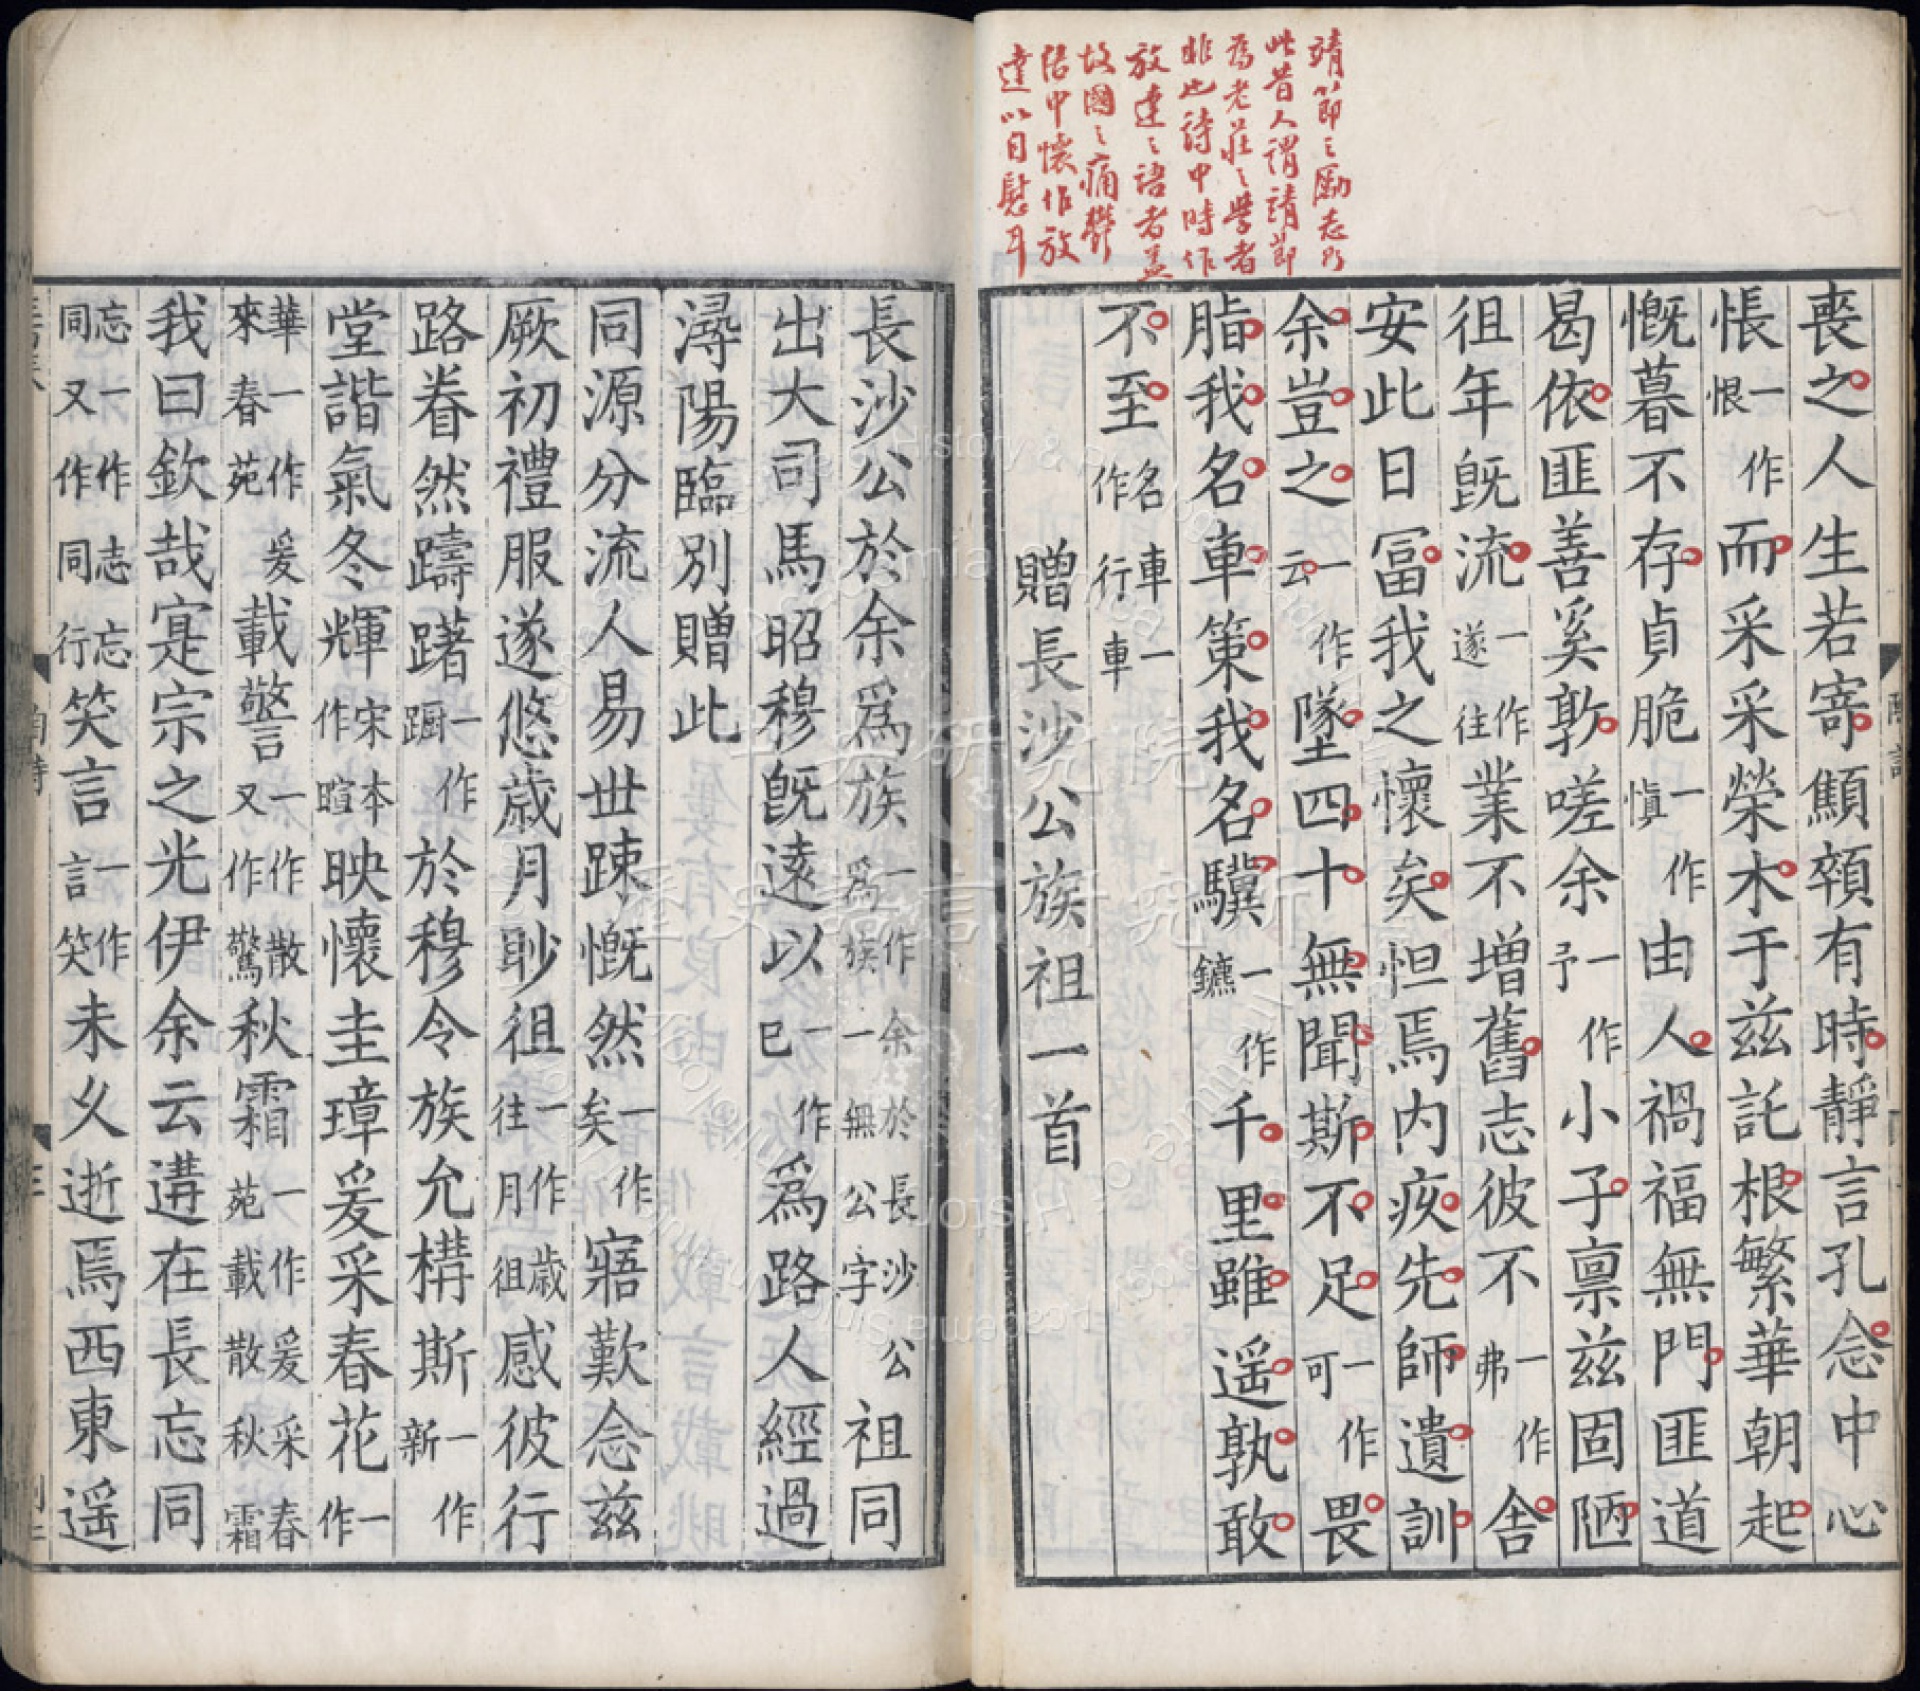 靖節之勵志乃
此昔人謂靖節
為老莊之學者
非也詩中時作
放達之語者蓋
故國之痛鬱
結中懷作放
達以自慰耳
喪之人生若寄顦顇有時靜言孔念中心
悵一作恨而采采榮木于兹託根繁華朝起
慨暮不存貞脆一作慎由人禍福無門匪道
曷依匪善奚敦嗟余一作予小子禀兹固陋
徂年旣流一作遂往業不增舊志彼不一作弗舍
安此日冨我之懷矣怛焉内疚先師遺訓
余豈之一作云墜四十無聞斯不足一作可畏
脂我名車策我名驥一作鑣千里雖遥孰敢
不至名車一作行車
贈長沙公族祖一首
長沙公於余爲族一作余於長沙公爲族一無公字祖同
出大司馬昭穆旣遠以一作已爲路人經過
潯陽臨別贈此
同源分流人易丗踈慨然一作矣寤歎念兹
厥初禮服遂悠歲月眇徂一作歲往月徂感彼行
路眷然躊躇一作躕於穆令族允構斯一作新
堂諧氣冬輝宋本作暄映懷圭璋爰采春花一作
華一作爰來春苑載警一作散又作驚秋霜一作爰采春苑載散秋霜
我曰欽哉寔宗之光伊余云遘在長忘同
忘一作志忘同又作同行笑言一作言笑未久逝焉西東遥